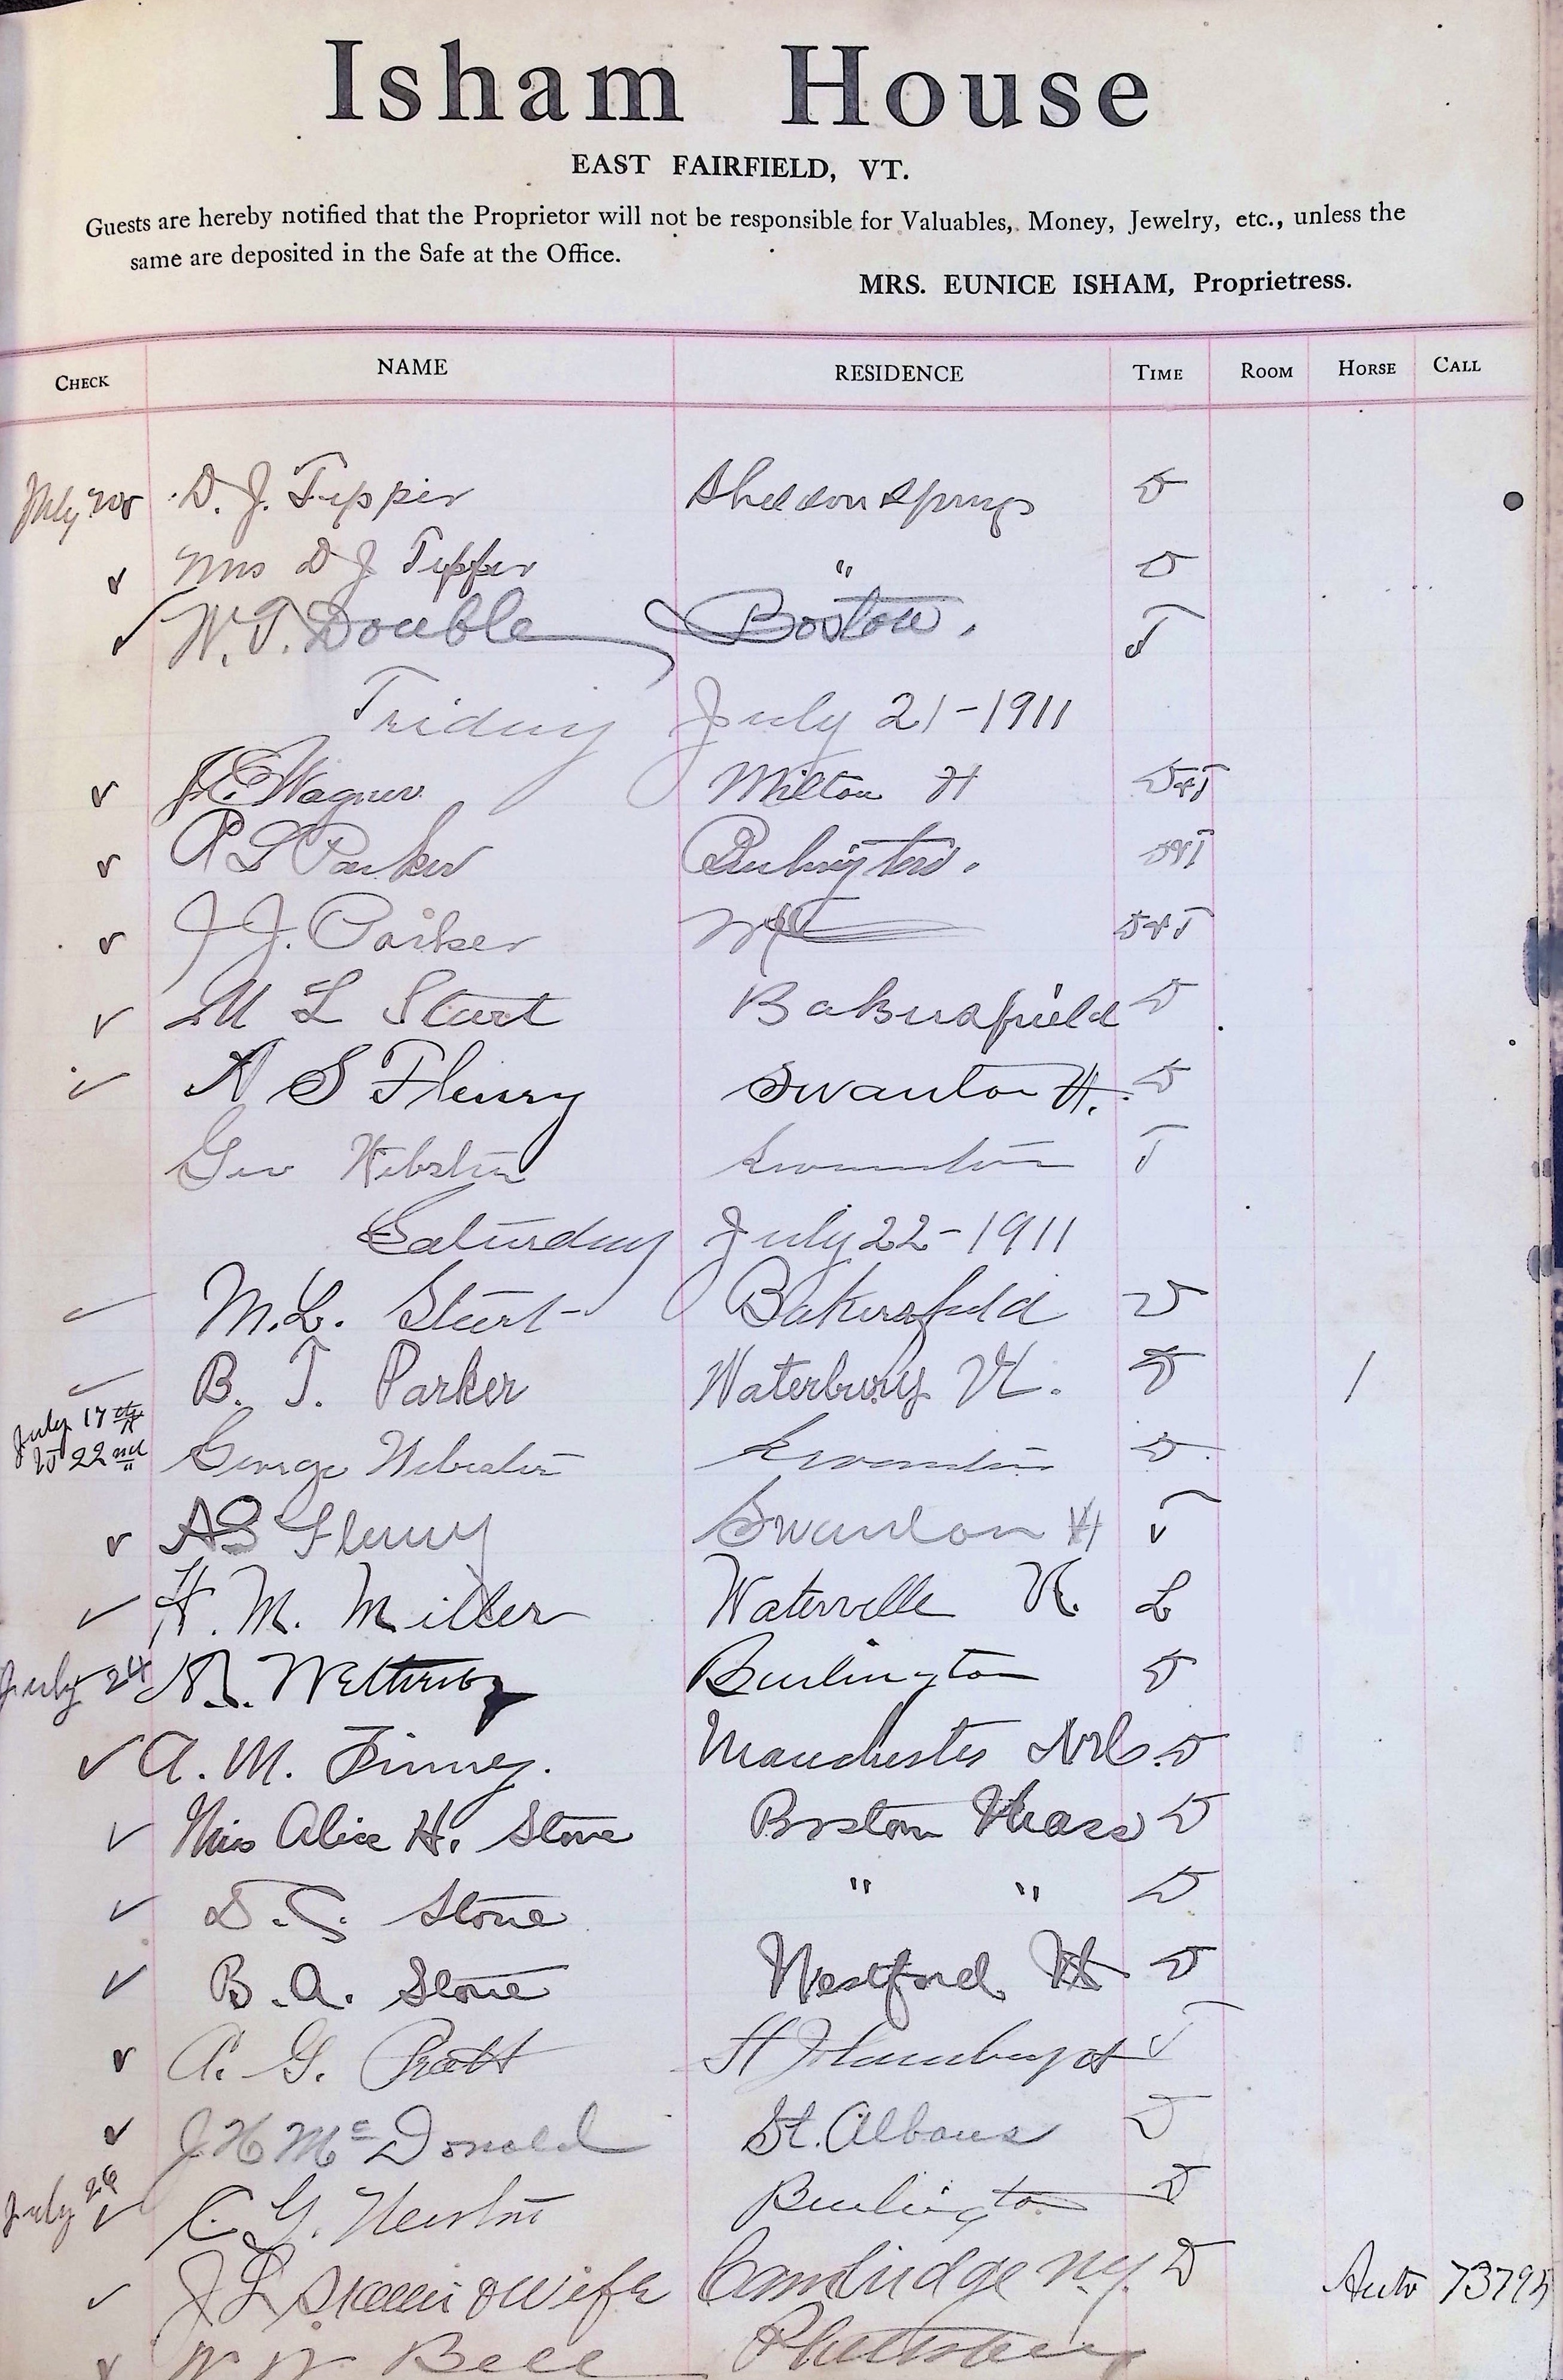 Isham House
EAST FAIRFIELD, VT.
Guests are hereby notified that the Proprietor will not be responsible for Valuables, Money, Jewelry, etc., unless the
same are deposited in the Safe at the Office.
MRS. EUNICE ISHAM, Proprietress.
CHECK NAME RESIDENCE TIME ROOM HORSE CALL
July D. J. Tupper Sheldon Springs D
✓ Mrs D J Tupper " D
✓ W. T. Double Boston. T
Friday July 21-1911
✓ J.E. Wagner Milton Vt D&T
✓ P L Parker Burlington. D&T
✓ J J. Parker D&T
✓ M L Start Bakersfield D
✓ A S Fleury Swanton Vt. D
Geo Webster Swanton T
Saturday July 22-1911
✓ M. L. Start Bakersfield D
✓ B. T. Parker Waterbury Vt. D /
July 17th
to 22nd George Webster Swanton D
✓ AS Fleury Swanton Vt T
✓ H. M. Miller Waterville Vt. L
July 24 Burlington D
✓ A. M. Finney. Manchester N.H. D
✓ Miss Alice H. Stone Boston Mass D
✓ D. S. Stone " " D
✓ B. A. Stone Westford Vt D
✓ A. G. Pratt St Johnsbury Vt T
✓ J H McDonald St. Albans D
July 26 ✓ C. G. Newton Burlington D
✓ J L & Wife Cambridge N.Y. D Auto
✓ W W Bell